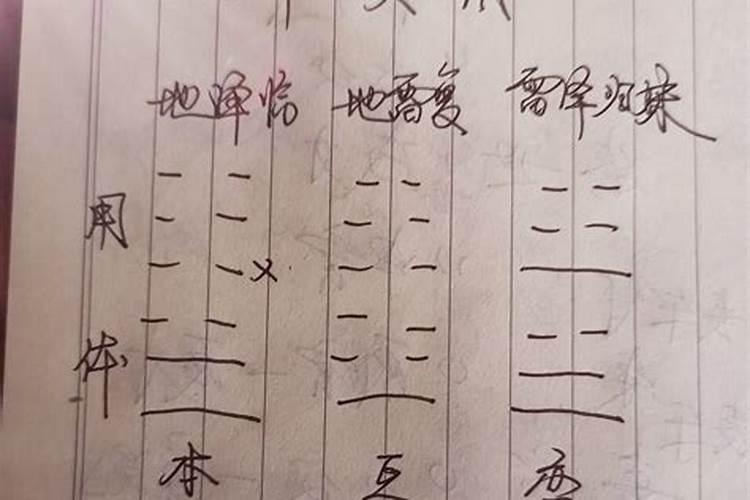 地泽临 地雷复 雷泽归妹
用
×
体
本 互 变